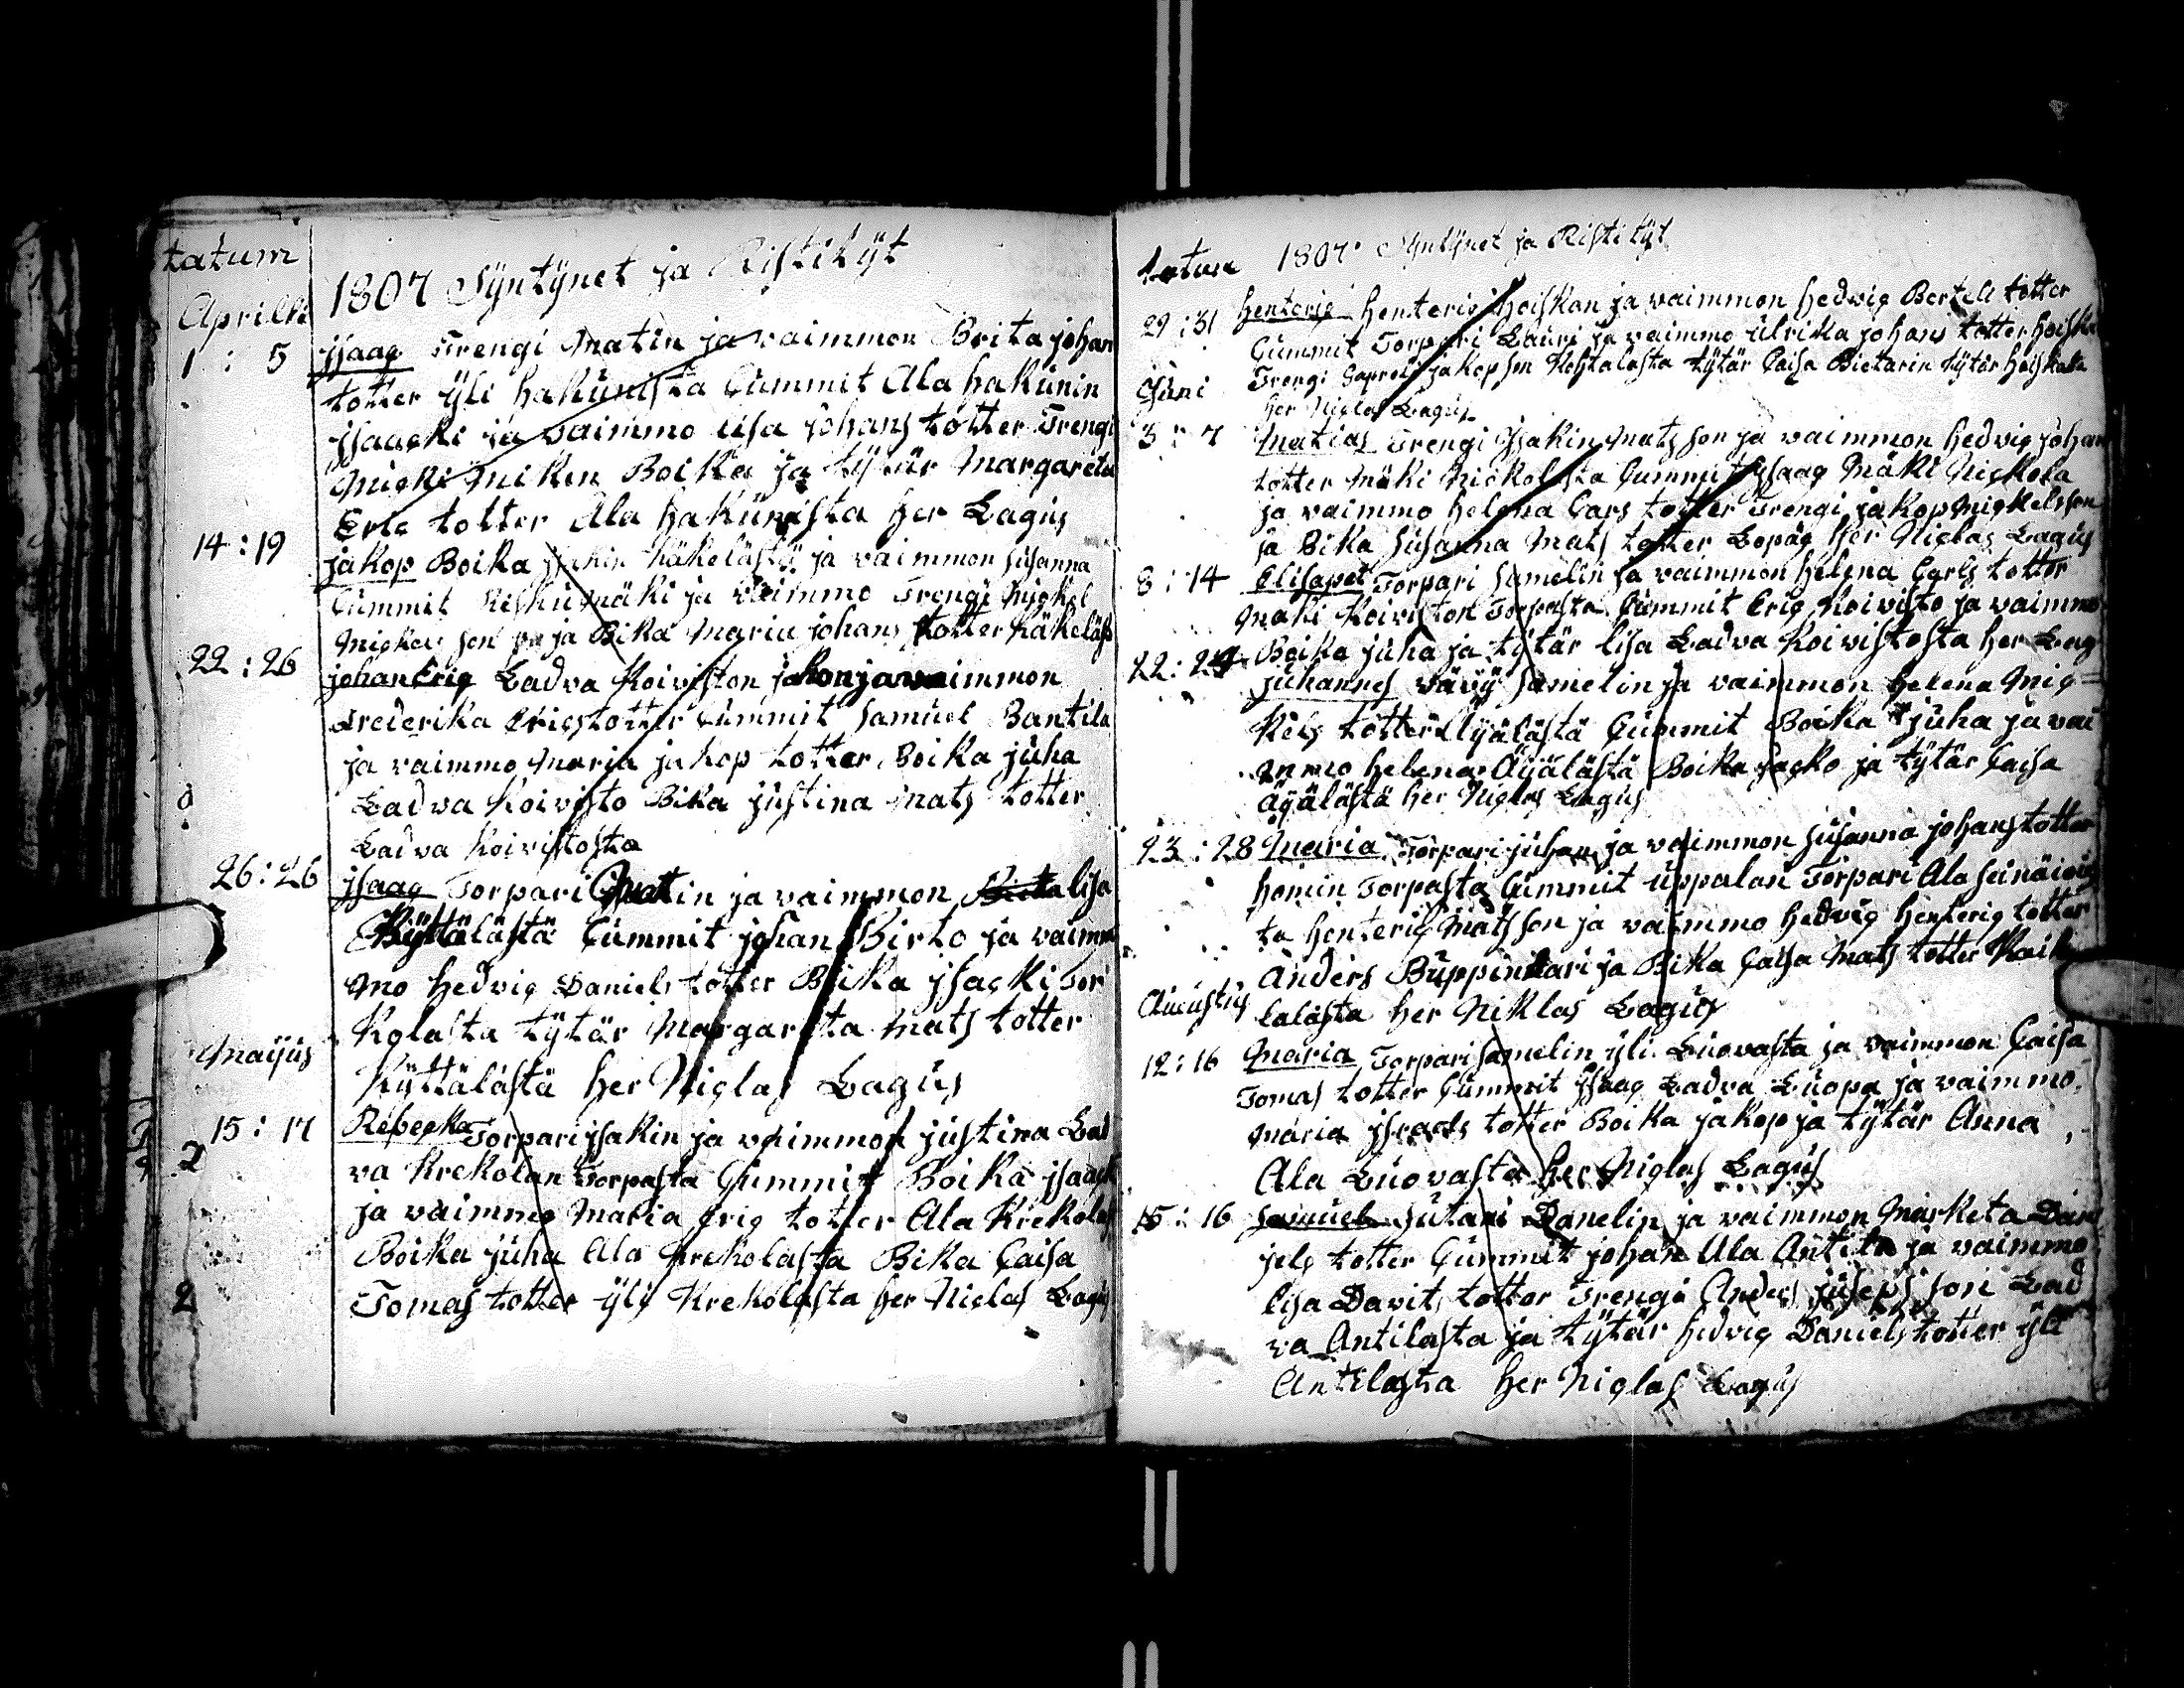 tatum
1807 Sÿntÿnet ja Ristitÿt
Aprilli
1 : 5 jsaag Trengi Matin ja vaimmon Brita johan
totter ÿli hakunista Cummit Ala hakunin
jsaacki ja vaimmo lisa johans totter Trengi
Micki Miken Boika ja tÿtär Margareta
Eric totter Ala hakunista her Lagus
14 : 19 jakop Boika jsakin käkelästä ja vaimmon susanna
Cummit Riskumäki ja vaimmo Trengi Mickel
Mickels son ja Bika Maria johans totter käkeläst
22 : 26 johan Erig Ladva Koiviston jakon ja vaimmon
Frederika Erics totter Cummit samuel Bantila
ja vaimmo Maria jakop totter Boika juha
Ladva Koivisto Bika justina Mats totter
Ladva Koivistosta
26 : 26 jsaag Torpari Matin ja vaimmon Brita lisa
Kÿttälästä Cummit johan Birto ja vaimm
mo hedvig Daniels totter Boika jsacki Tor
kolasta tÿtär Margareta Mats totter
Kÿttälästä her Niclas Lagus
Maÿus
15 : 17 Rebecka Torpari jsakin ja vaimmon justina Lad
va Krekolan Torpasta Cummit Boika jsaack
ja vaimmo Maria Eric totter Ala Krekolas
Boika juha Ala Krekolasta Bika Caisa
2 Tomas totter ÿli Krekolasta her Niclas Lagus
tatum 1807 Sÿntÿnet ja Ristitÿt
29 : 31 henteric henteric hoiskan ja vaimmon hedvig Berteli totter
Cummit Torpari Lauri ja vaimmo ulrika johans totter hoiska
Juni Trengi Gapreli jakop son Kohtalasta tÿtär Caisa Bietarin tÿtär hoiskala
her Niclas Lagus
3 : 7 Matias Trengi jsakin Mats son ja vaimmon hedvig johan
totter Mäki Nickolasta Cummit jsaag Mäki Nickola
ja vaimmo helena Cars totter Trengi jakop Mickelsson
ja Bika susanna Mats totter Lopag her Niclas Lagus
8 : 14 Elisapet Torpari samelin ja vaimmon helena Carls totter
Mäki Koiviston Torpasta Cummit Eric Koivisto ja vaimmo
Boika juha ja tÿtär lisa Ladva Koivistosta her Lag
22 : 24 juhannes vävÿ samelin ja vaimmon helena Mic=
kels totter Äÿälästä Cummit Boika juha ja vai
mmo helena Äÿälästä Boika jacko ja tÿtär Caisa
Äÿälästä her Niclas Lagus
23 : 28 Maria Torpari juhan ja vaimmon susanna johans totter
homiin Torpasta Cummit uppalan Torpari Ala seinäiois
ta henteric Mats son ja vaimmo hedvig henteric totter
Anders Buppinkari ja Bika Caisa Mats totter Kaik
Aucustus lalasta her Niklas Lagus
12 : 16 Maria Torpari samelin ÿli Luovasta ja vaimmon Caisa
Tomas totter Cummit jsaag Ladva Luopa ja vaimmo
Maria jsraels totter Boika jakop ja tÿtär Anna
Ala Luovasta her Niclas Lagus
15 : 16 samuel sutari Danelin ja vaimmon Marketa Dan
jels totter Cummit johan Ala Antila ja vaimmo
lisa Davits totter Trengi Anders juseps son Lad
va Antilasta ja tÿtär hedvig Daniels totter ÿli
Antilasta her Niclas Lagus